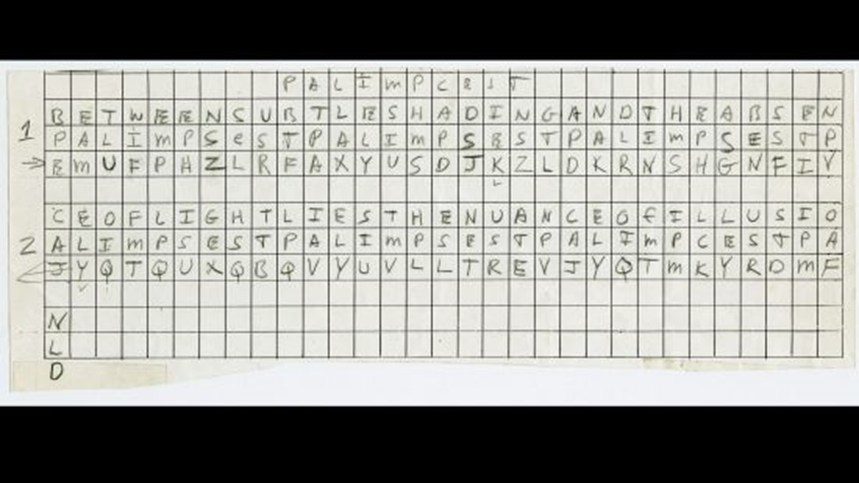 P A L I m P C E S T
B E T W E E N S U B T L E S H A D I N G A N D T H E A B S E N
1 P A L I m P S e S T P A L I m P S E S T P A L I m P S E S T P
→ E m U F P H Z L R F A X Y U S D J K Z L D K R N S H G N F I V
C E O F L I G H T L I E S T H E N U A N C E O F I L L U S I O
2 A L I m P S E S T P A L I m P S E S T P A L I m P C E S T P A
J Y Q T Q U X Q B Q V Y U V L L T R E V J Y Q T m K Y R D m F
N
L
D